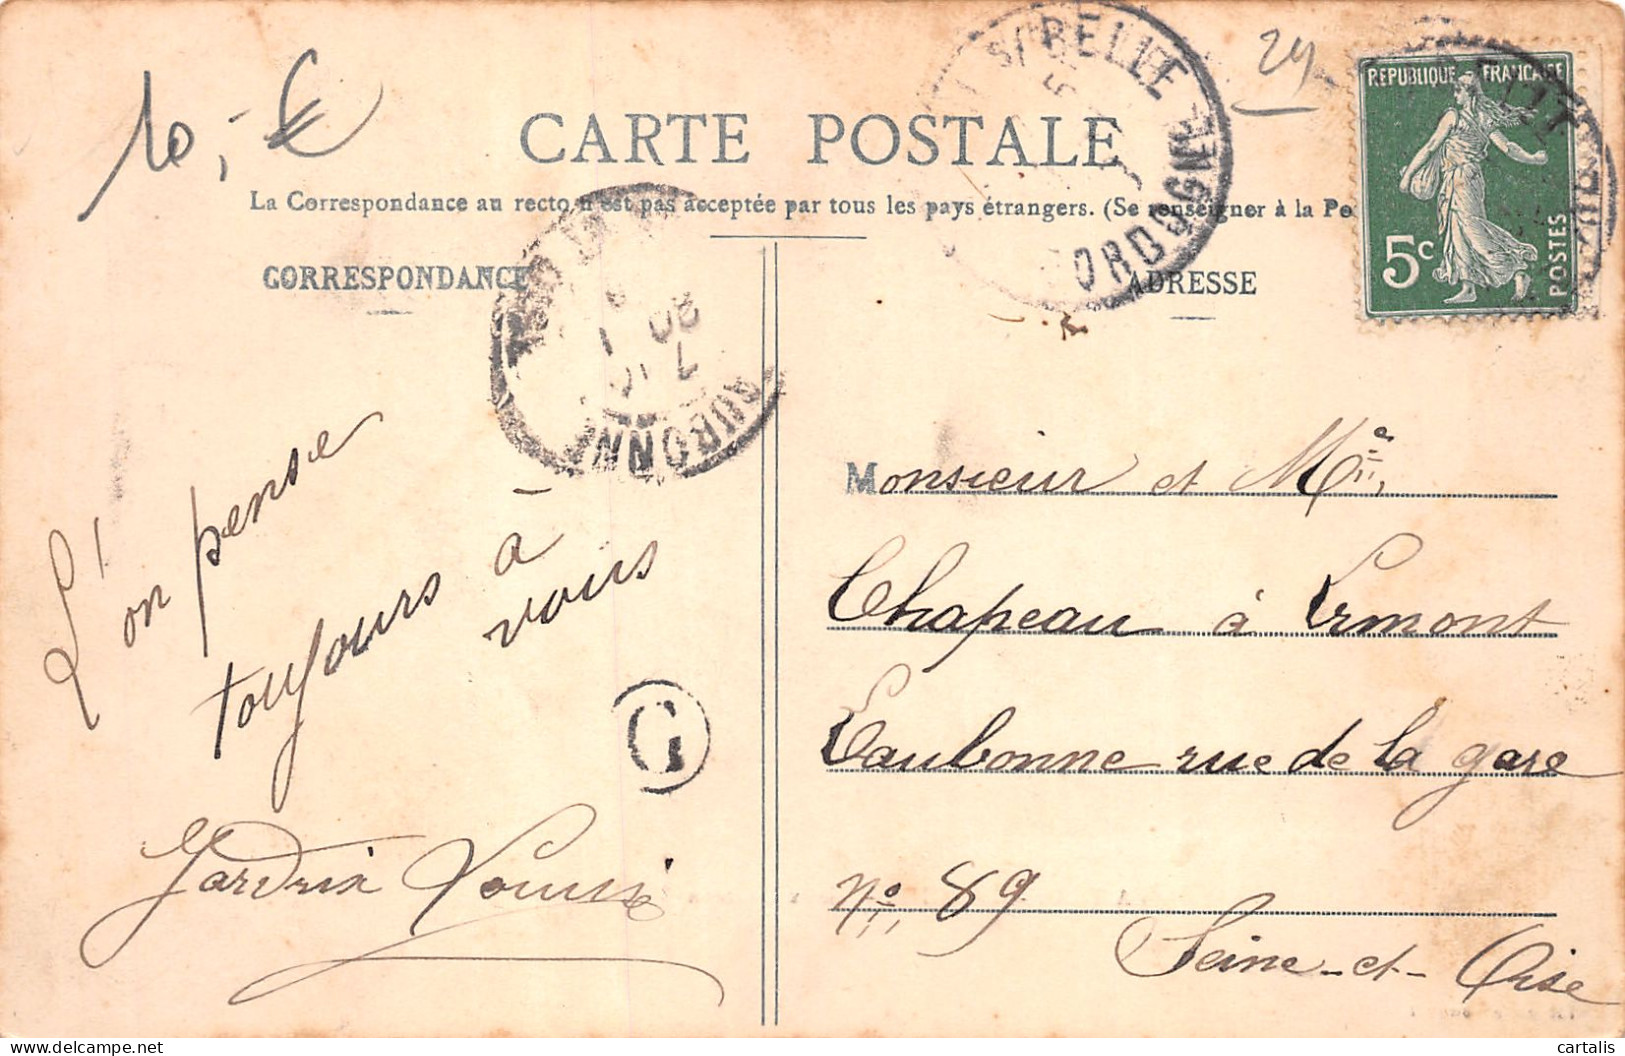 10,-€
24
CARTE POSTALE
La Correspondance au recto n'est pas acceptée par tous les pays étrangers. (Se renseigner à la Po
CORRESPONDANCE
ADRESSE
REPUBLIQUE FRANÇAISE
5c
POSTES
BELLE
DORDOGNE
20
7
10
L'on pense
toujours à
vous
G
Jardrix
Monsieur et Mme
Chapeau à Ermont
Eaubonne rue de la gare
No. 89
Seine-et-Oise
www.delcampe.net
cartalis